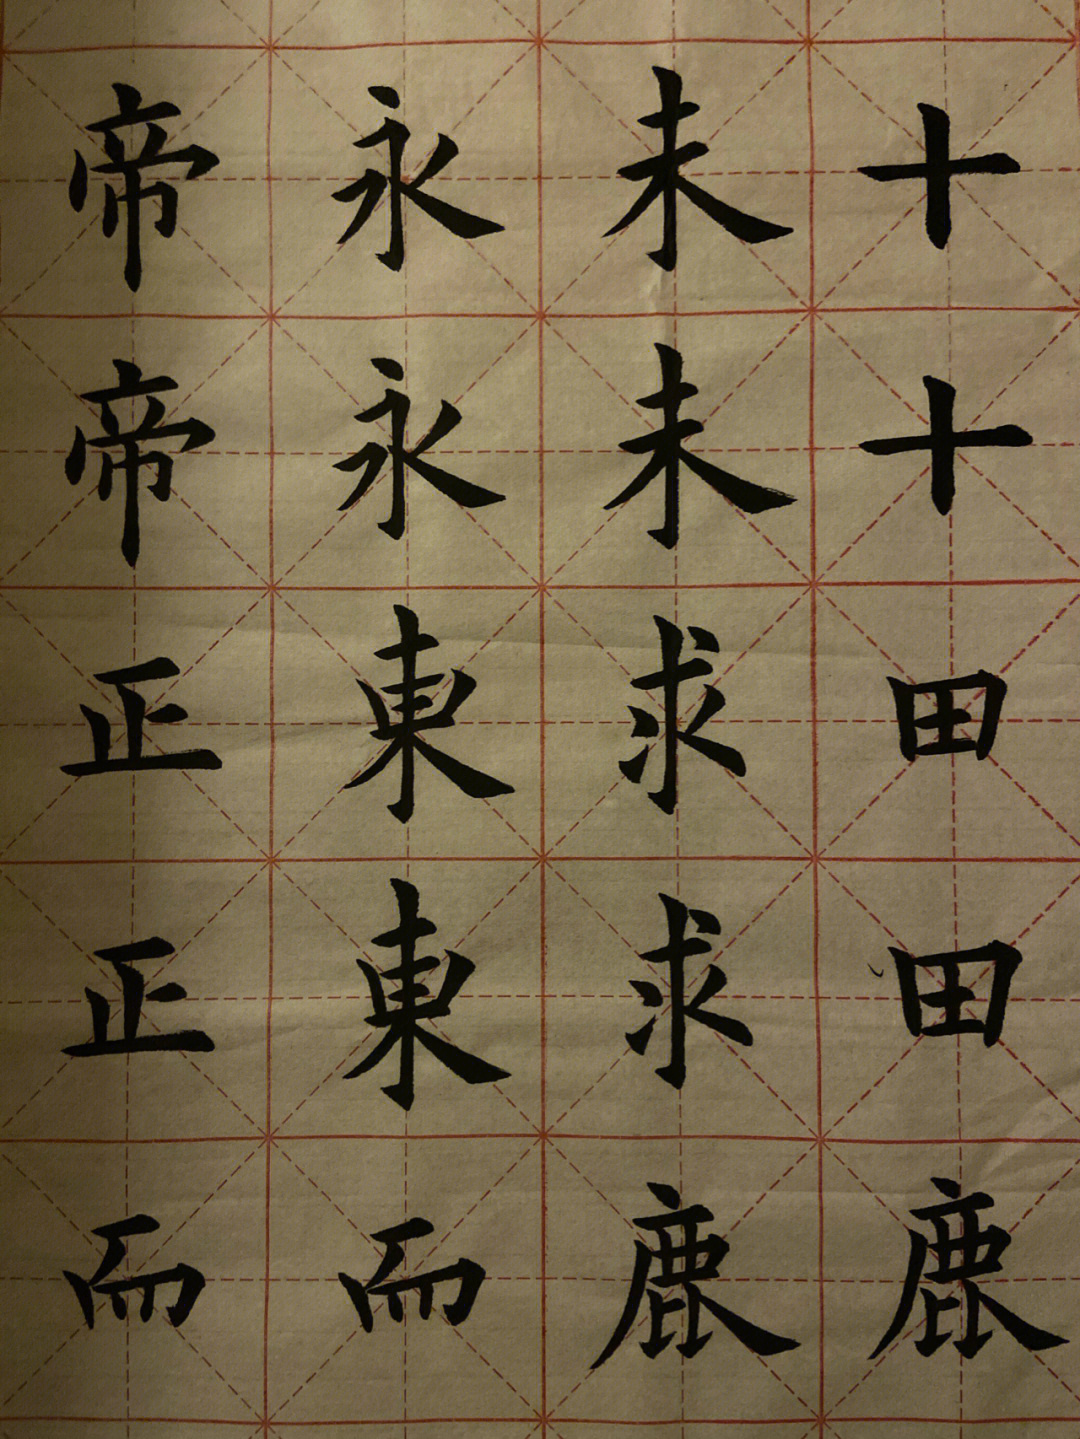 十十田田鹿
未未求求鹿
永永東東而
帝帝正正而